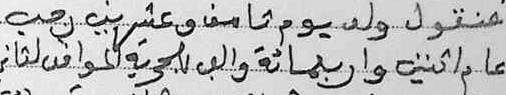 فنقول ولد يوم ثامن وعشرين رجب
عام اثنين واربعمائة والف للهجرية الموافق لثاني